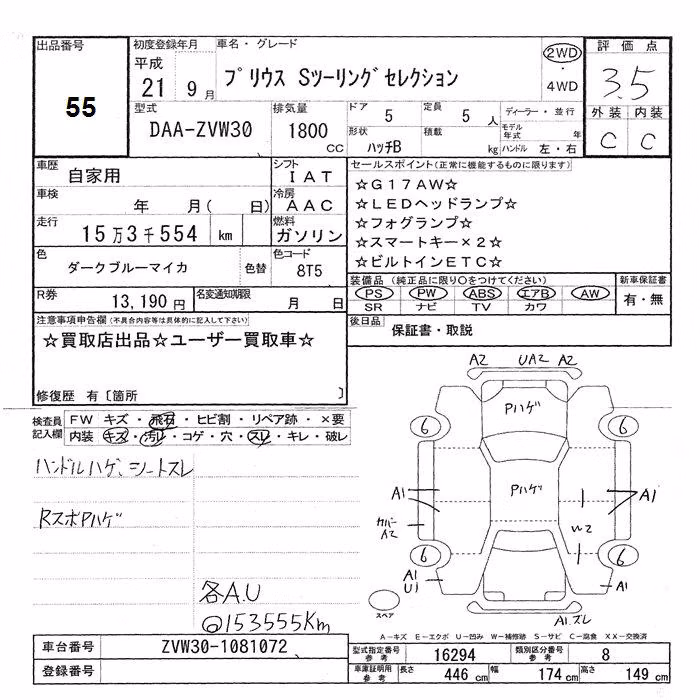 出品番号 初度登録年月 車名・グレード 評価点
55
平成 21 9月 プリウス Sツーリングセレクション 2WD ・ 4WD 3.5
型式 排気量 ドア 5 定員 5人 ディーラー・並行 外装 内装
DAA-ZVW30 1800 CC 形状 ハッチB 積載 kg モデル年式 年 ハンドル 左・右 C C
車歴 自家用 シフト IAT セールスポイント(正常に機能するものに限ります)
車検 年 月( 日) 冷房 AAC ☆G17AW☆
☆LEDヘッドランプ☆
走行 15万3千554 km 燃料 ガソリン ☆フォグランプ☆
☆スマートキー×2☆
色 ダークブルーマイカ 色替 色コード 8T5 ☆ビルトインETC☆
装備品(純正品に限り○をつけてください) 新車保証書
R券 13,190円 名変通知期限 月 日 PS PW ABS エアB AW 有・無
SR ナビ TV カワ
注意事項申告欄(不具合内容等は具体的に記入して下さい) 後日品 保証書・取説
☆買取店出品☆ユーザー買取車☆
修復歴 有〔箇所 〕
検査員記入欄 FW キズ・飛石・ヒビ割・リペア跡・×要
内装 キズ・汚レ・コゲ・穴・スレ・キレ・破レ
ハンドルハゲ、シートスレ
RスポPハゲ
各A.U
@153555Km
A2 UA2 A2
Pハゲ
6 6
A1 Pハゲ A1
カバーA2 W2
6 6
A1 U1 A1
スペア A1.ズレ
A-キズ E-エクボ U-凹み W-補修跡 S-サビ C-腐食 XX-交換済
車台番号 ZVW30-1081072 型式指定番号参考 16294 類別区分番号参考 8
登録番号 車庫証明用参考 長さ 446cm 幅 174cm 高さ 149cm